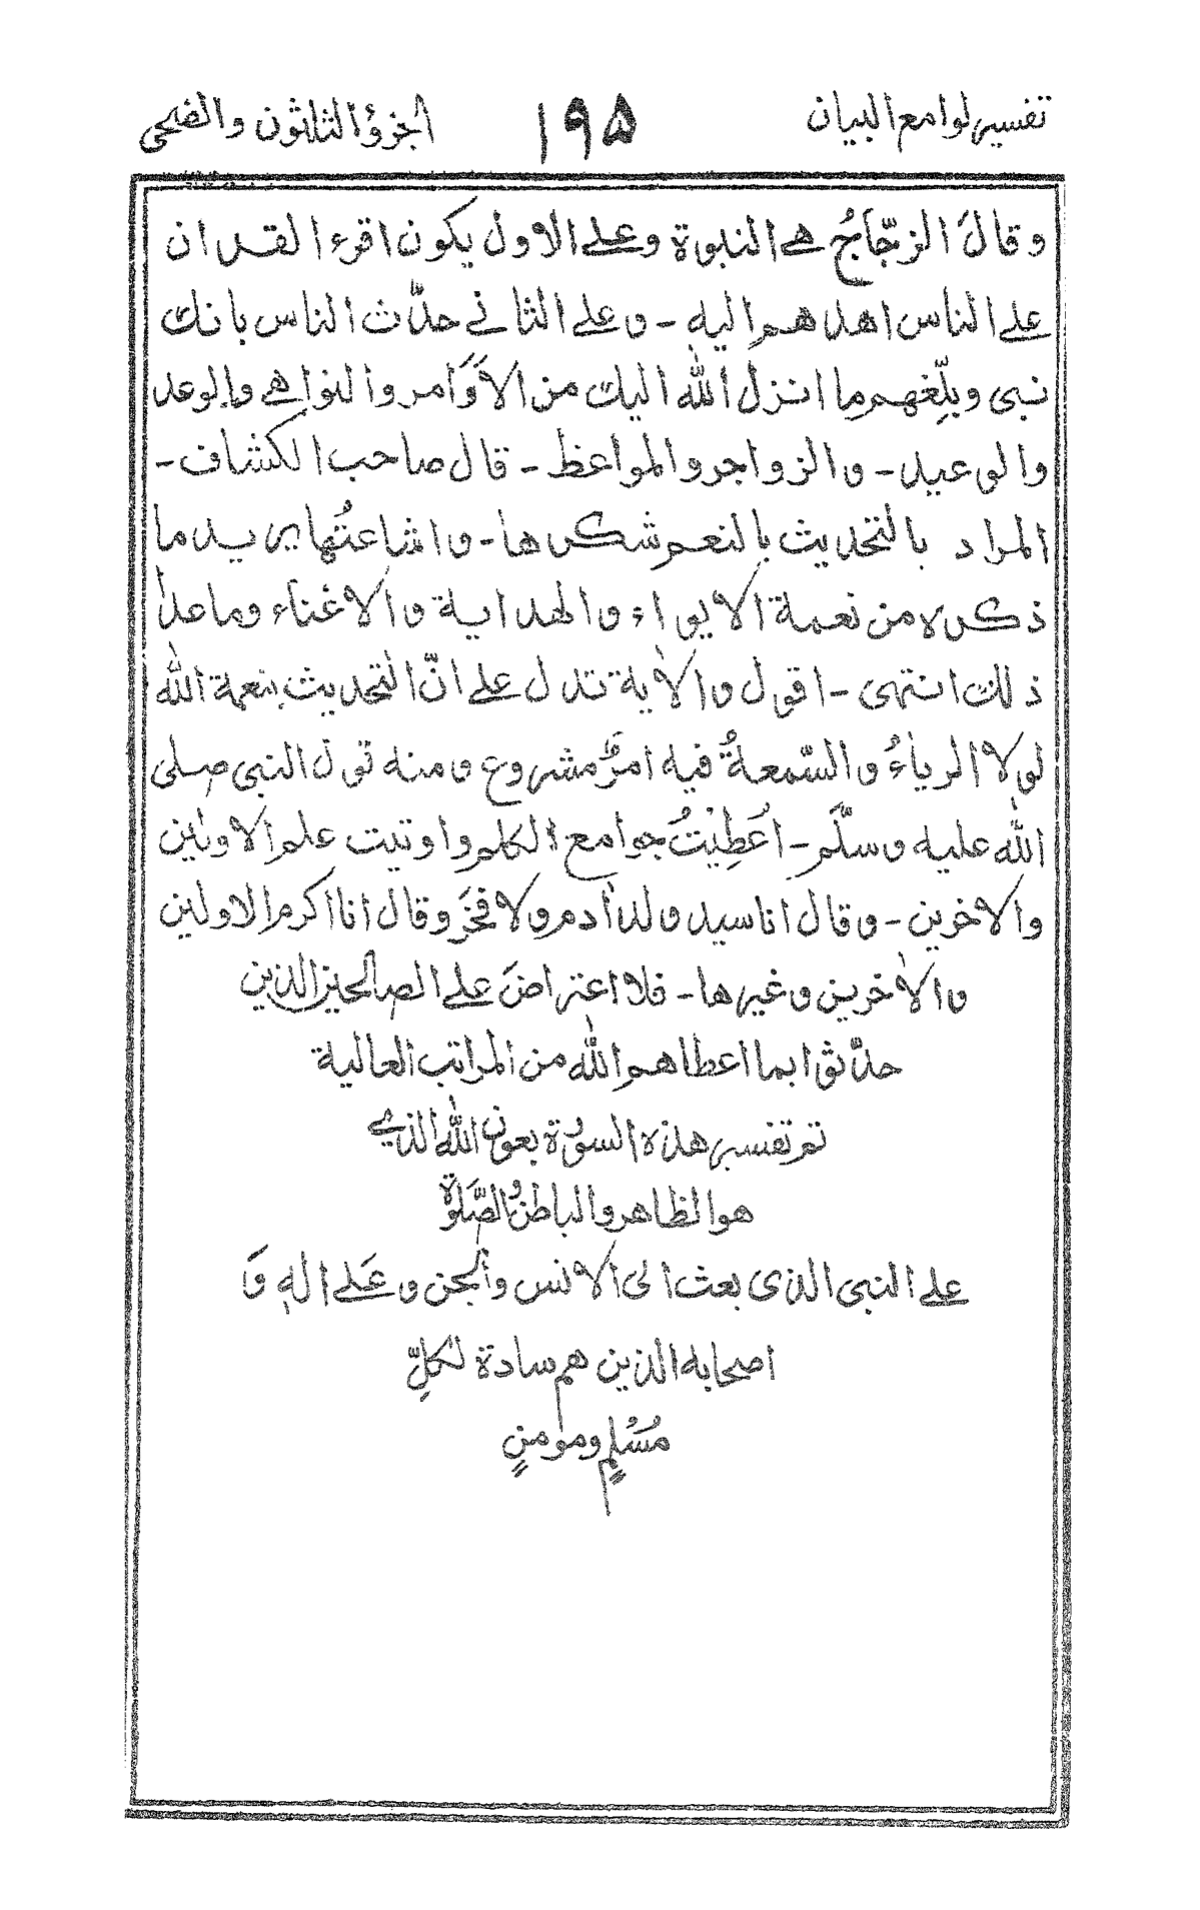 تفسير لوامع البيان ١٩٥ الجزؤ الثلثون والضحى
و قالَ الزجّاجُ هے النبوة و علے الاول يكون اقرء القران
علے الناس اهدهم اليه - و علے الثانے حدّث الناس بانك
نبى وبلّغهم ما انزل الله اليك من الاَوَامر والنواهے والوعد
والوعيد - و الزواجر والمواعظ - قال صاحب الكشاف -
المراد بالتحديث بالنعم شكرها - و اشاعتُها يريد ما
ذكره من نعمة الايواء و الهداية و الاغناء وما عدا
ذلك انتهى - اقول و الاية تدل علے انّ التحديث بنعمة الله
لولا الرياءُ و السّمعةُ فيه امرٌ مشروع و منه قول النبى صلى
الله عليه و سلّم - اُعطِيْتُ جوامع الكلم و اوتيت علم الاولين
والاخرين - و قال انا سيد ولد ادم ولا فخَر و قال انا اكرم الاولين
و الاخرين و غيرها - فلا اعتراضَ علے الصالحين الذين
حدّثوا بما اعطاهم الله من المراتب العالية
تم تفسير هذه السورة بعون الله الذي
هو الظاهر والباطن والصَّلوٰة
علے النبى الذى بعث الى الانس والجن و عَلے اله وَ
اصحابه الذين هم سادة لكلِّ
مُسْلمٍ ومومنٍ